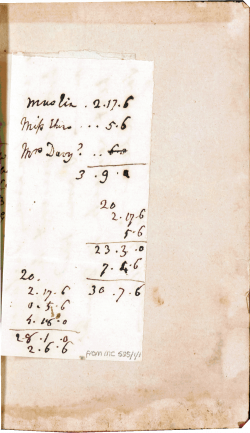 muslin . 2.17.6
Miss ... 5.6
Mrs Davy? ..
3 . 9 .
20
2.17.6
5.6
23.3.0
7.4.6
30.7.6
20.
2.17.6
0.5.6
4.18.0
28.1.0
2.6.6
from MC 525/1/1